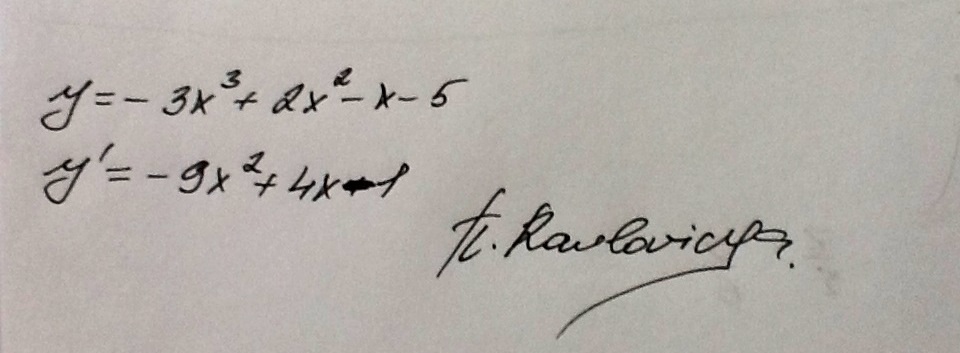 y = - 3x³ + 2x² - x - 5
y' = - 9x² + 4x - 1